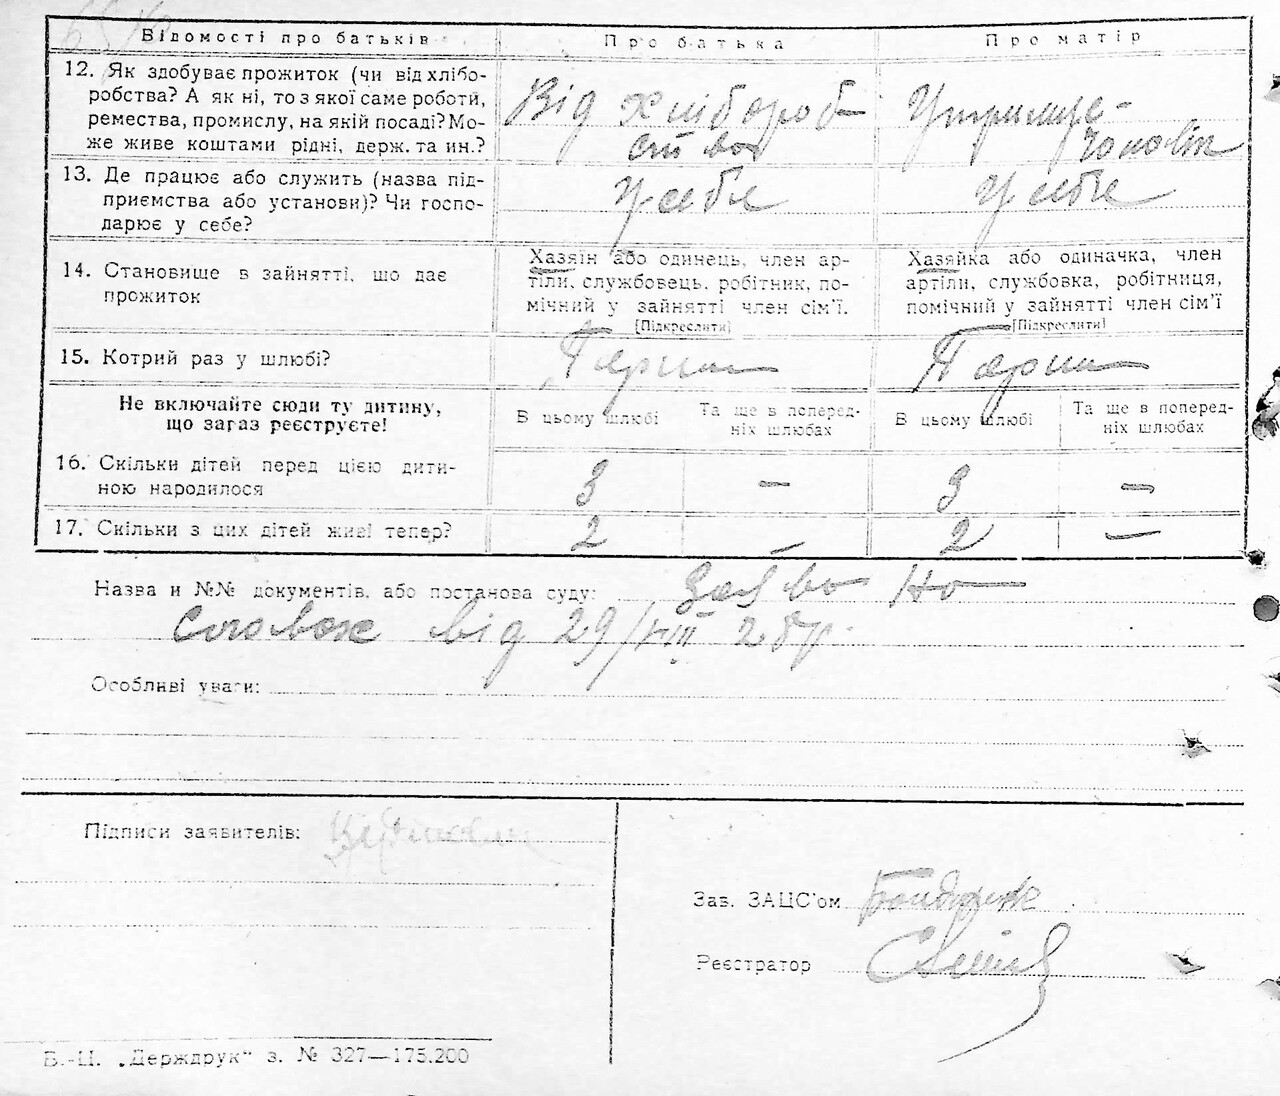 Відомості про батьків
Про батька
Про матір
12. Як здобуває прожиток (чи від хлібо-
робства? А як ні, то з якої саме роботи,
ремества, промислу, на якій посаді? Мо-
же живе коштами рідні, держ. та ин.?
Від хлібороб-
ства
Утримує
чоловік
13. Де працює або служить (назва під-
приємства або установи)? Чи госпо-
дарює у себе?
У себе
У себе
14. Становище в зайнятті, що дає
прожиток
Хазяїн або одинець, член ар-
тіли, службовець, робітник, по-
мічний у зайнятті член сім'ї.
[Підкреслити]
Хазяйка або одиначка, член
артіли, службовка, робітниця,
помічний у зайнятті член сім'ї
[Підкреслити]
15. Котрий раз у шлюбі?
Перший
Перший
Не включайте сюди ту дитину,
що зараз реєструєте!
В цьому шлюбі
Та ще в поперед-
ніх шлюбах
В цьому шлюбі
Та ще в поперед-
ніх шлюбах
16. Скільки дітей перед цією дити-
ною народилося
3 — 3 —
17. Скільки з цих дітей живі тепер?
2 — 2 —
Назва и №№ документів, або постанова суду:
від 29/VIII 28р.
Особливі уваги:
Підписи заявителів:
Зав. ЗАЦС'ом
Реєстратор
Б.-Ц. „Держдрук" з. № 327—175.200